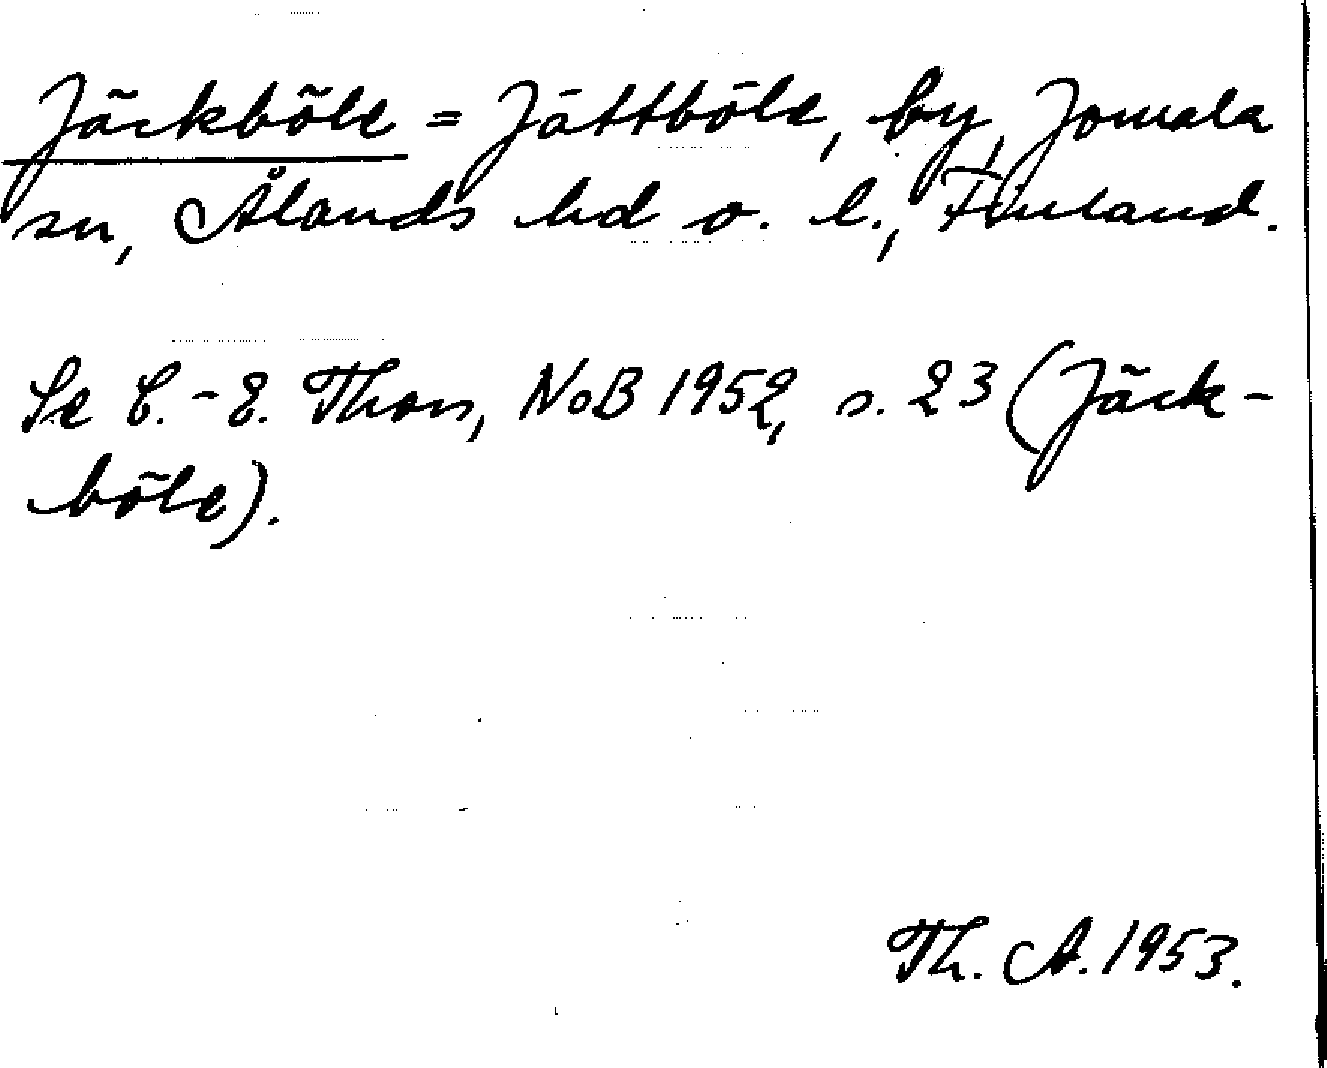 Jäckböle = Jättböle, by, Jomala
sn, Ålands hd o. l., Finland.
Se C.-E. Thors, NoB 1952, s. 23 (Jäck-
böle).
Th. A. 1953.